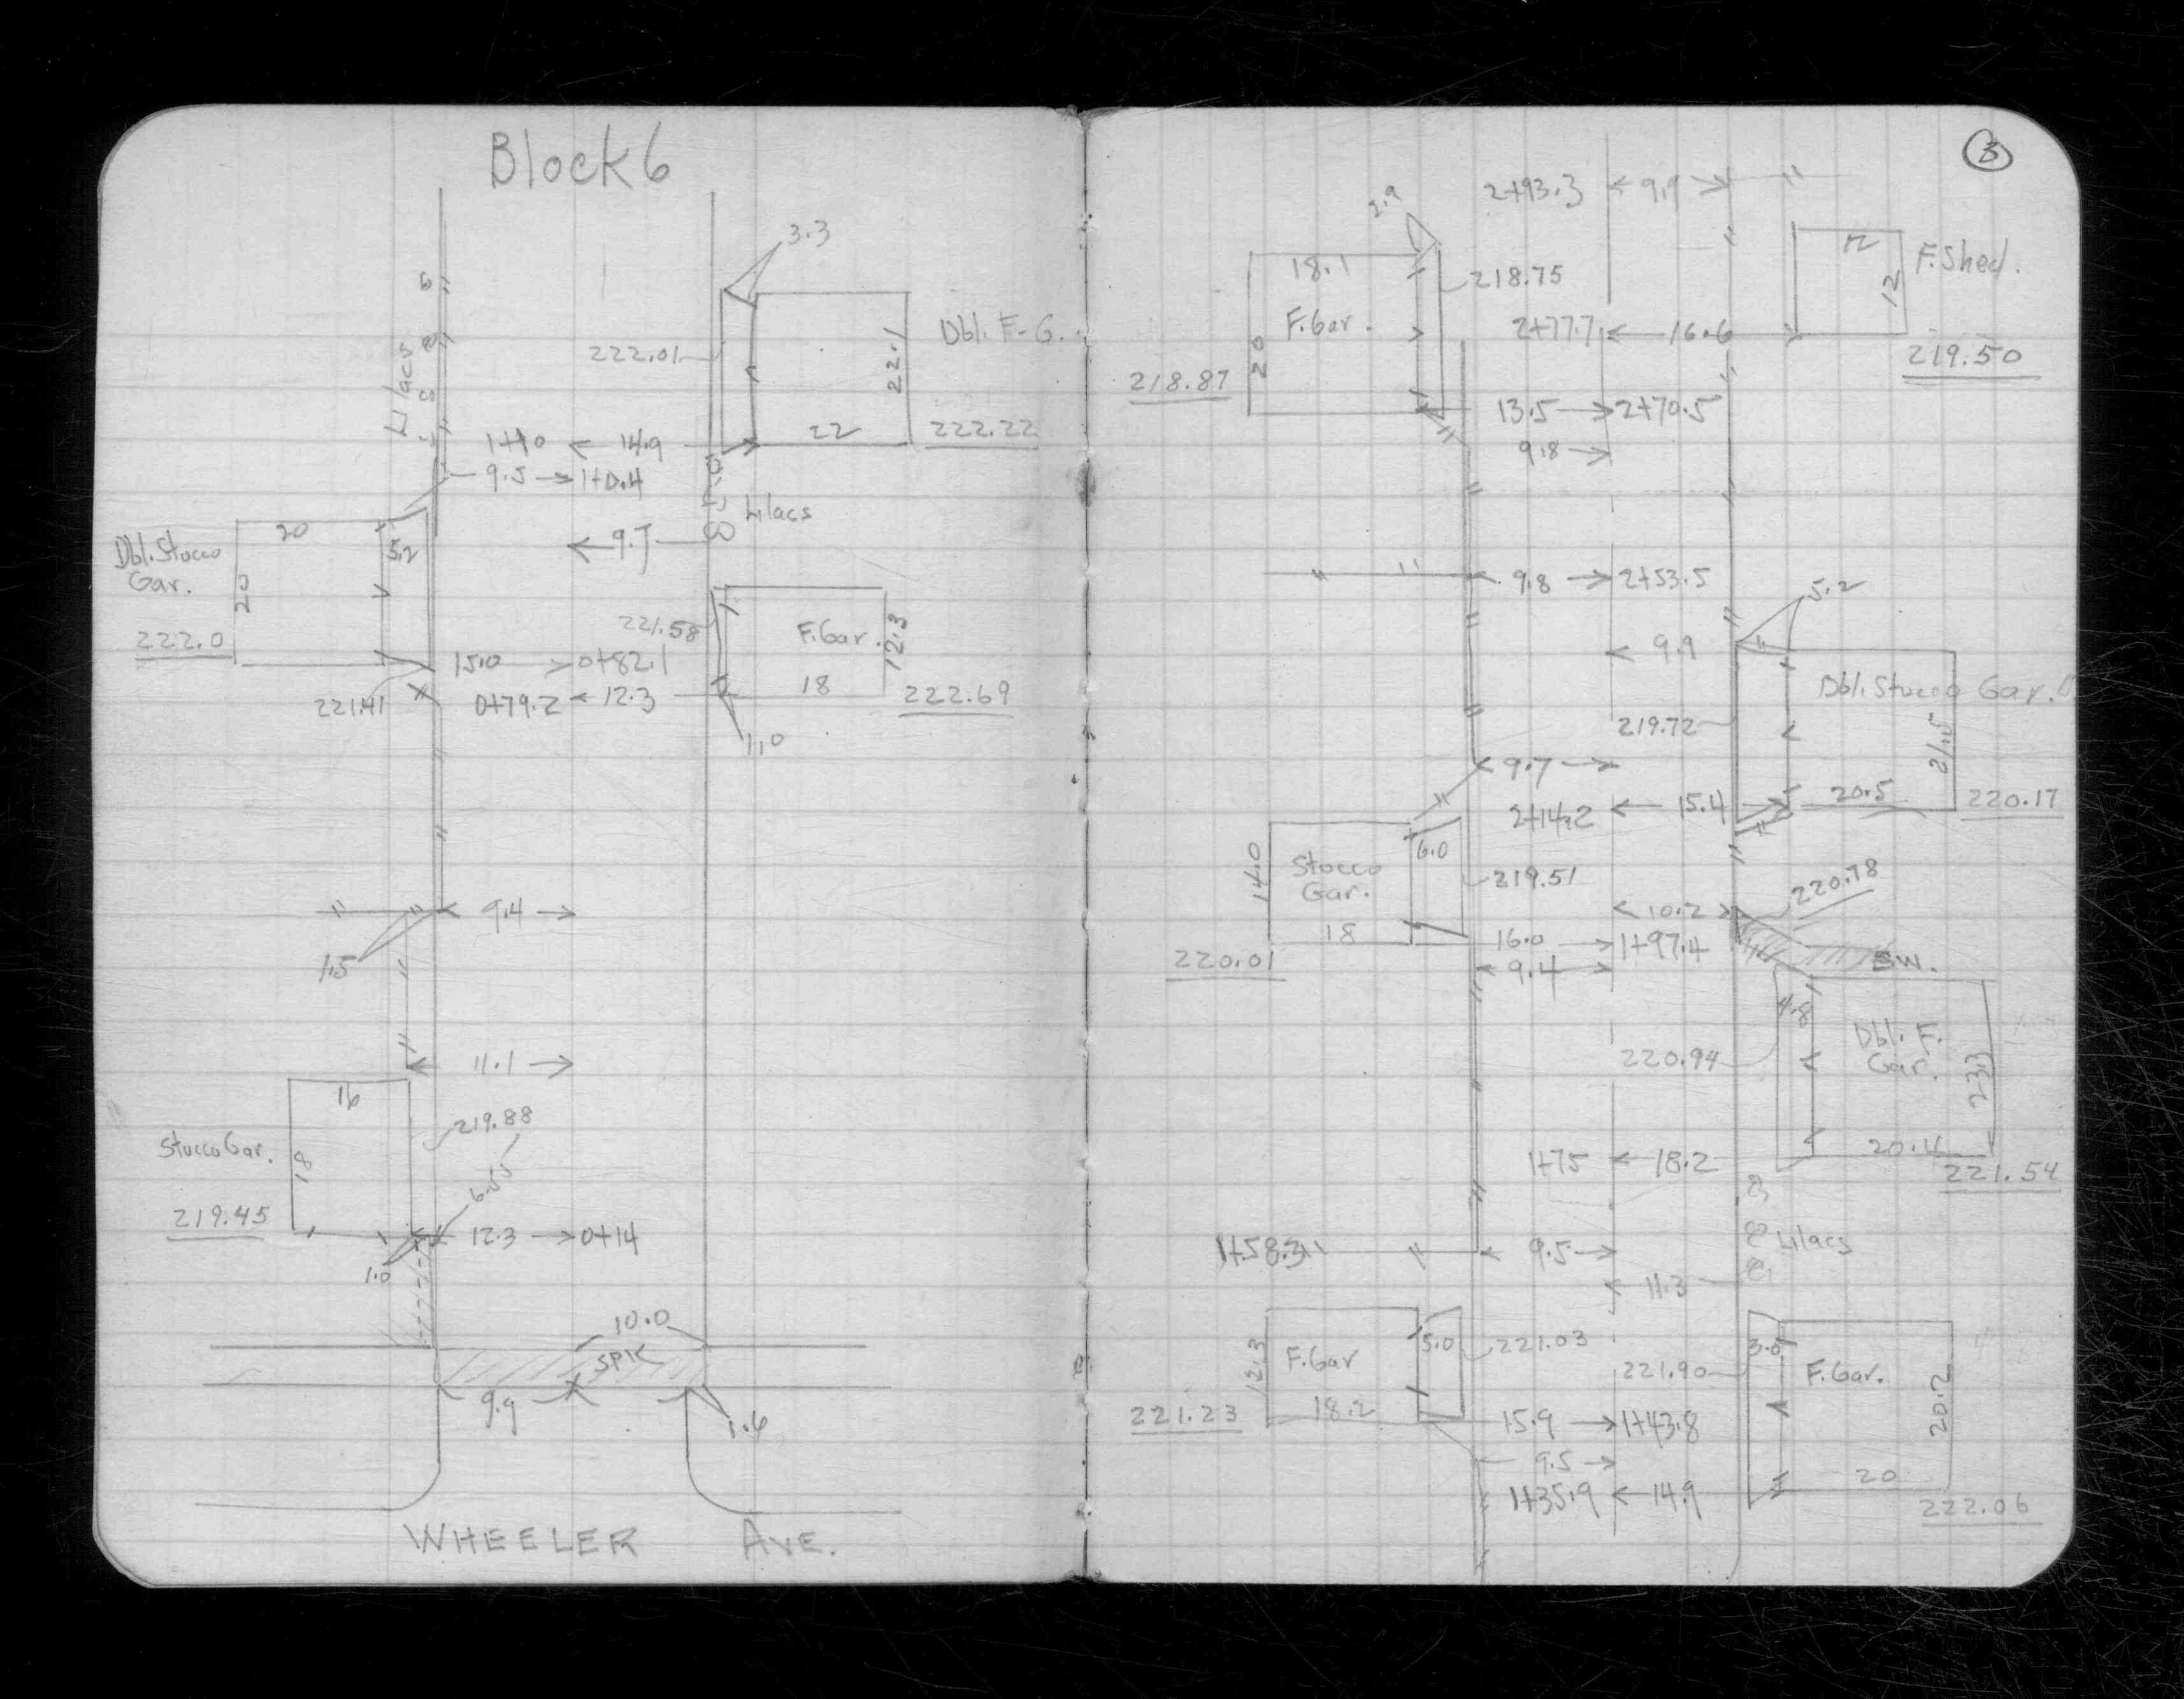 Block 6
3.3
Lilacs
222.01
Dbl. F. G.
22.1
22
222.22
1+10 ← 14.9
9.5 → 1+0.4
Lilacs
← 9.7
Dbl. Stucco
Gar.
20
20
5.2
222.0
221.41
221.58
F. Gar.
12.3
18
222.69
15.0 → 0+82.1
0+79.2 ← 12.3
1.0
9.4 →
1.5
11.1 →
16
18
Stucco Gar.
219.88
219.45
12.3 → 0+14
1.0
10.0
SPK
9.9
1.6
WHEELER AVE.
3
2+93.3 ← 9.9 →
2.9
18.1
F. Gar.
20
218.75
218.87
12
12
F. Shed.
219.50
2+77.7 ← 16.6
13.5 → 2+70.5
9.8 →
9.8 → 2+53.5
5.2
← 9.9
Dbl. Stucco Gar.
219.72
21.5
20.5
220.17
← 9.7 →
2+14.2 ← 15.4
14.0
Stucco
Gar.
6.0
18
219.51
220.01
220.78
← 10.2 →
16.0 → 1+97.4
← 9.4 →
4.8
Dbl. F.
Gar.
23.3
220.94
20.4
221.54
1+75 ← 18.2
1+58.3
← 9.5 →
Lilacs
← 11.3
12.3
F. Gar
5.0
18.2
221.03
221.23
221.90
3.0
F. Gar.
20.2
20
222.06
15.9 → 1+43.8
← 9.5 →
1+35.9 ← 14.9